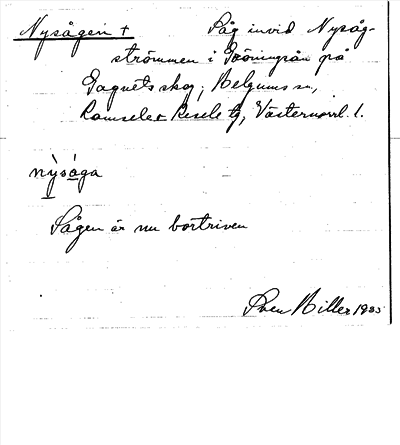 Nysågen + Såg invid Nysåg-
strömmen i
på
skog; Helgums sn,
Ramsele o Resele tg, Västernorrl. l.
nysåga
Sågen är nu bortriven
Sven Hiller